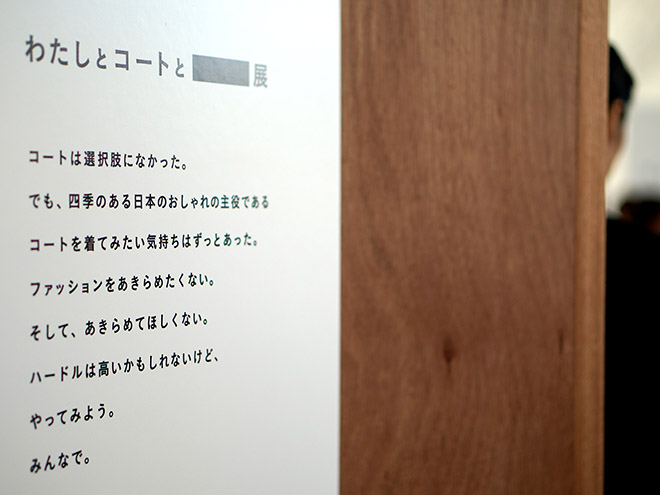 わたしとコートと 展
コートは選択肢になかった。
でも、四季のある日本のおしゃれの主役である
コートを着てみたい気持ちはずっとあった。
ファッションをあきらめたくない。
そして、あきらめてほしくない。
ハードルは高いかもしれないけど、
やってみよう。
みんなで。